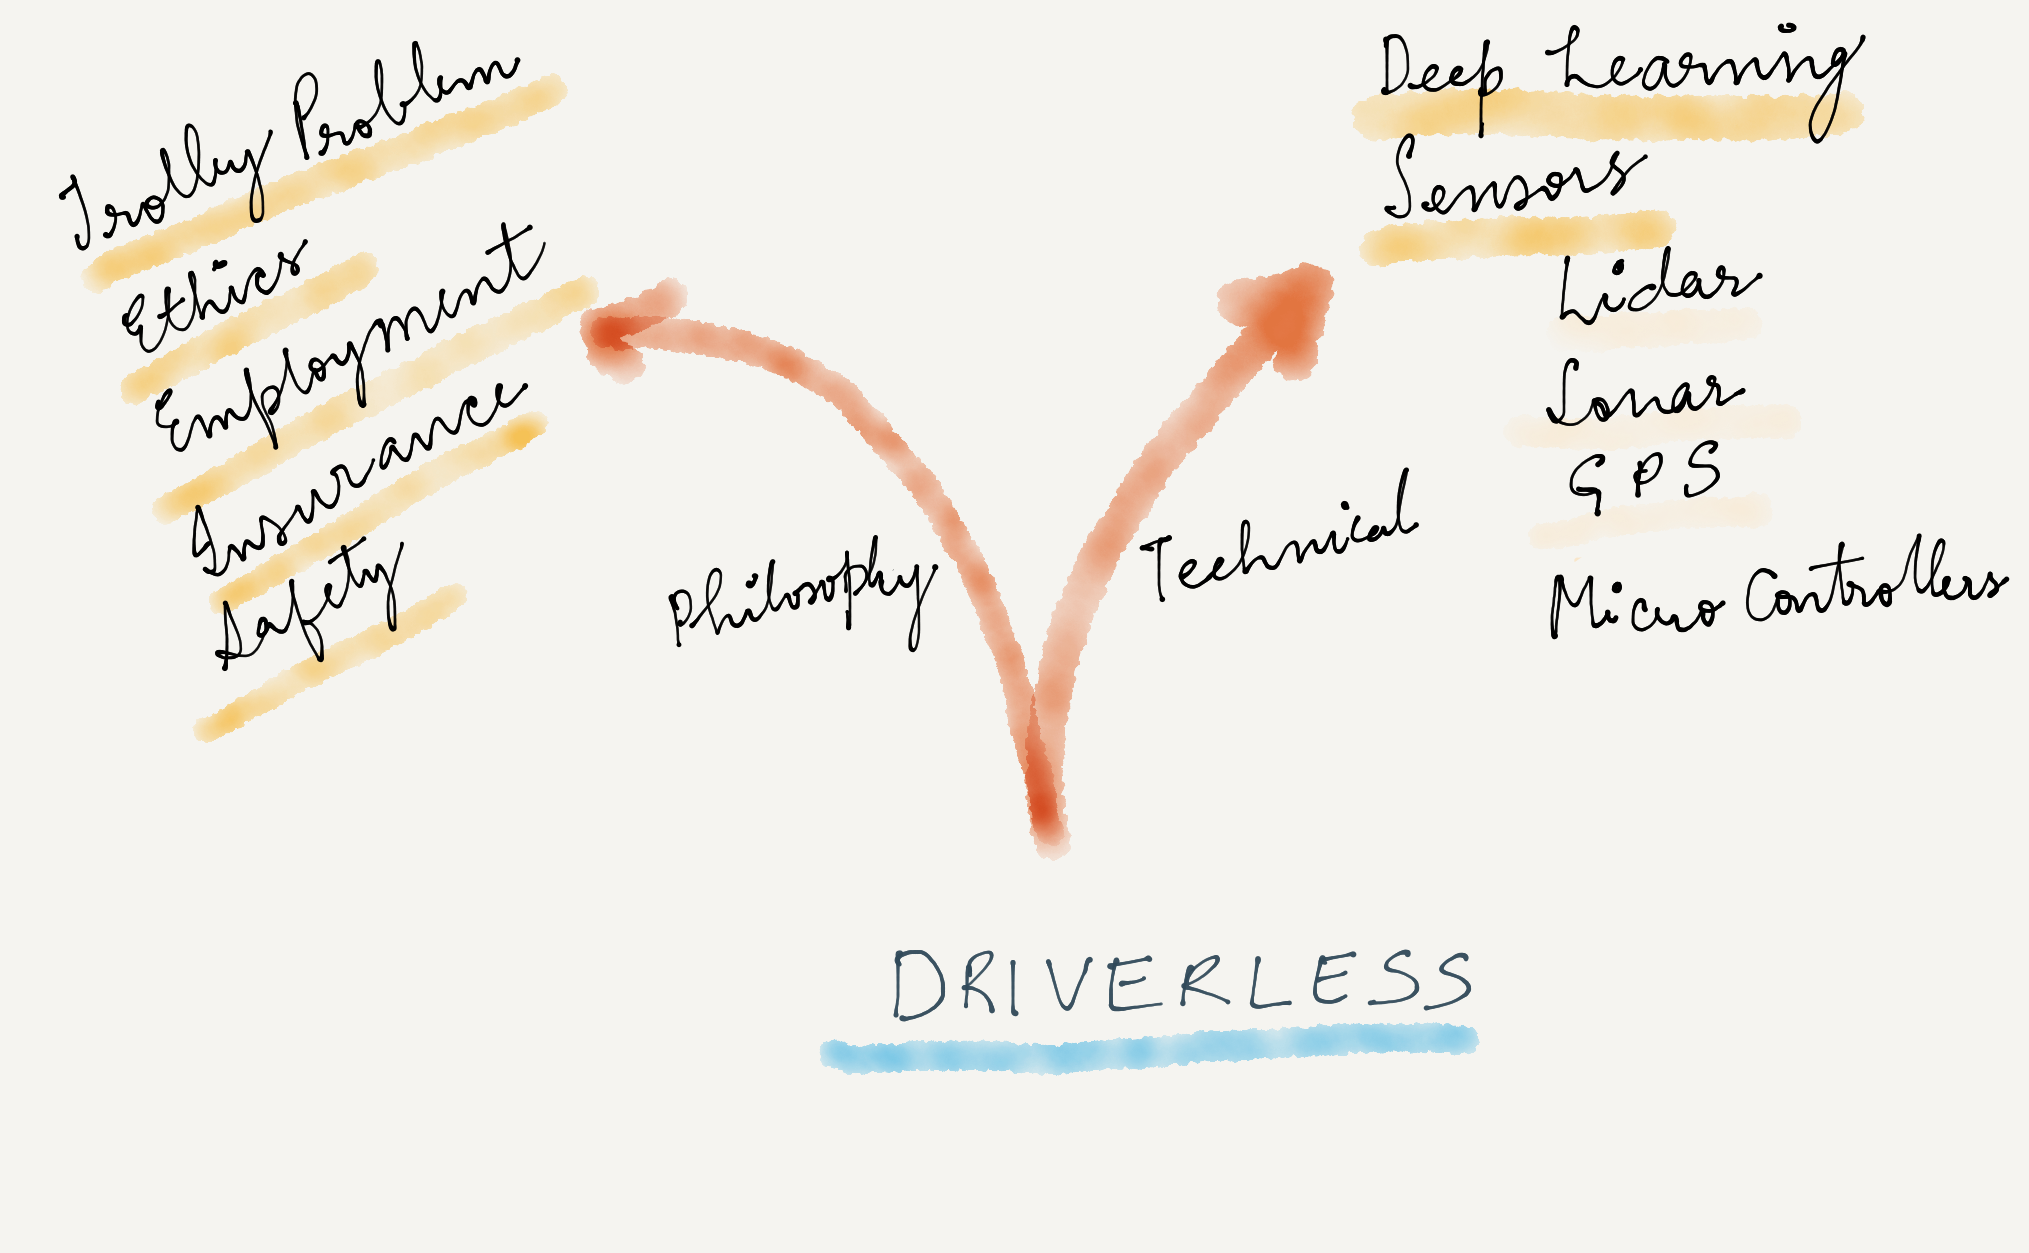 Trolley Problem
Ethics
Employment
Insurance
Safety
Philosophy
Technical
Deep Learning
Sensors
Lidar
Sonar
GPS
Micro Controllers
DRIVERLESS